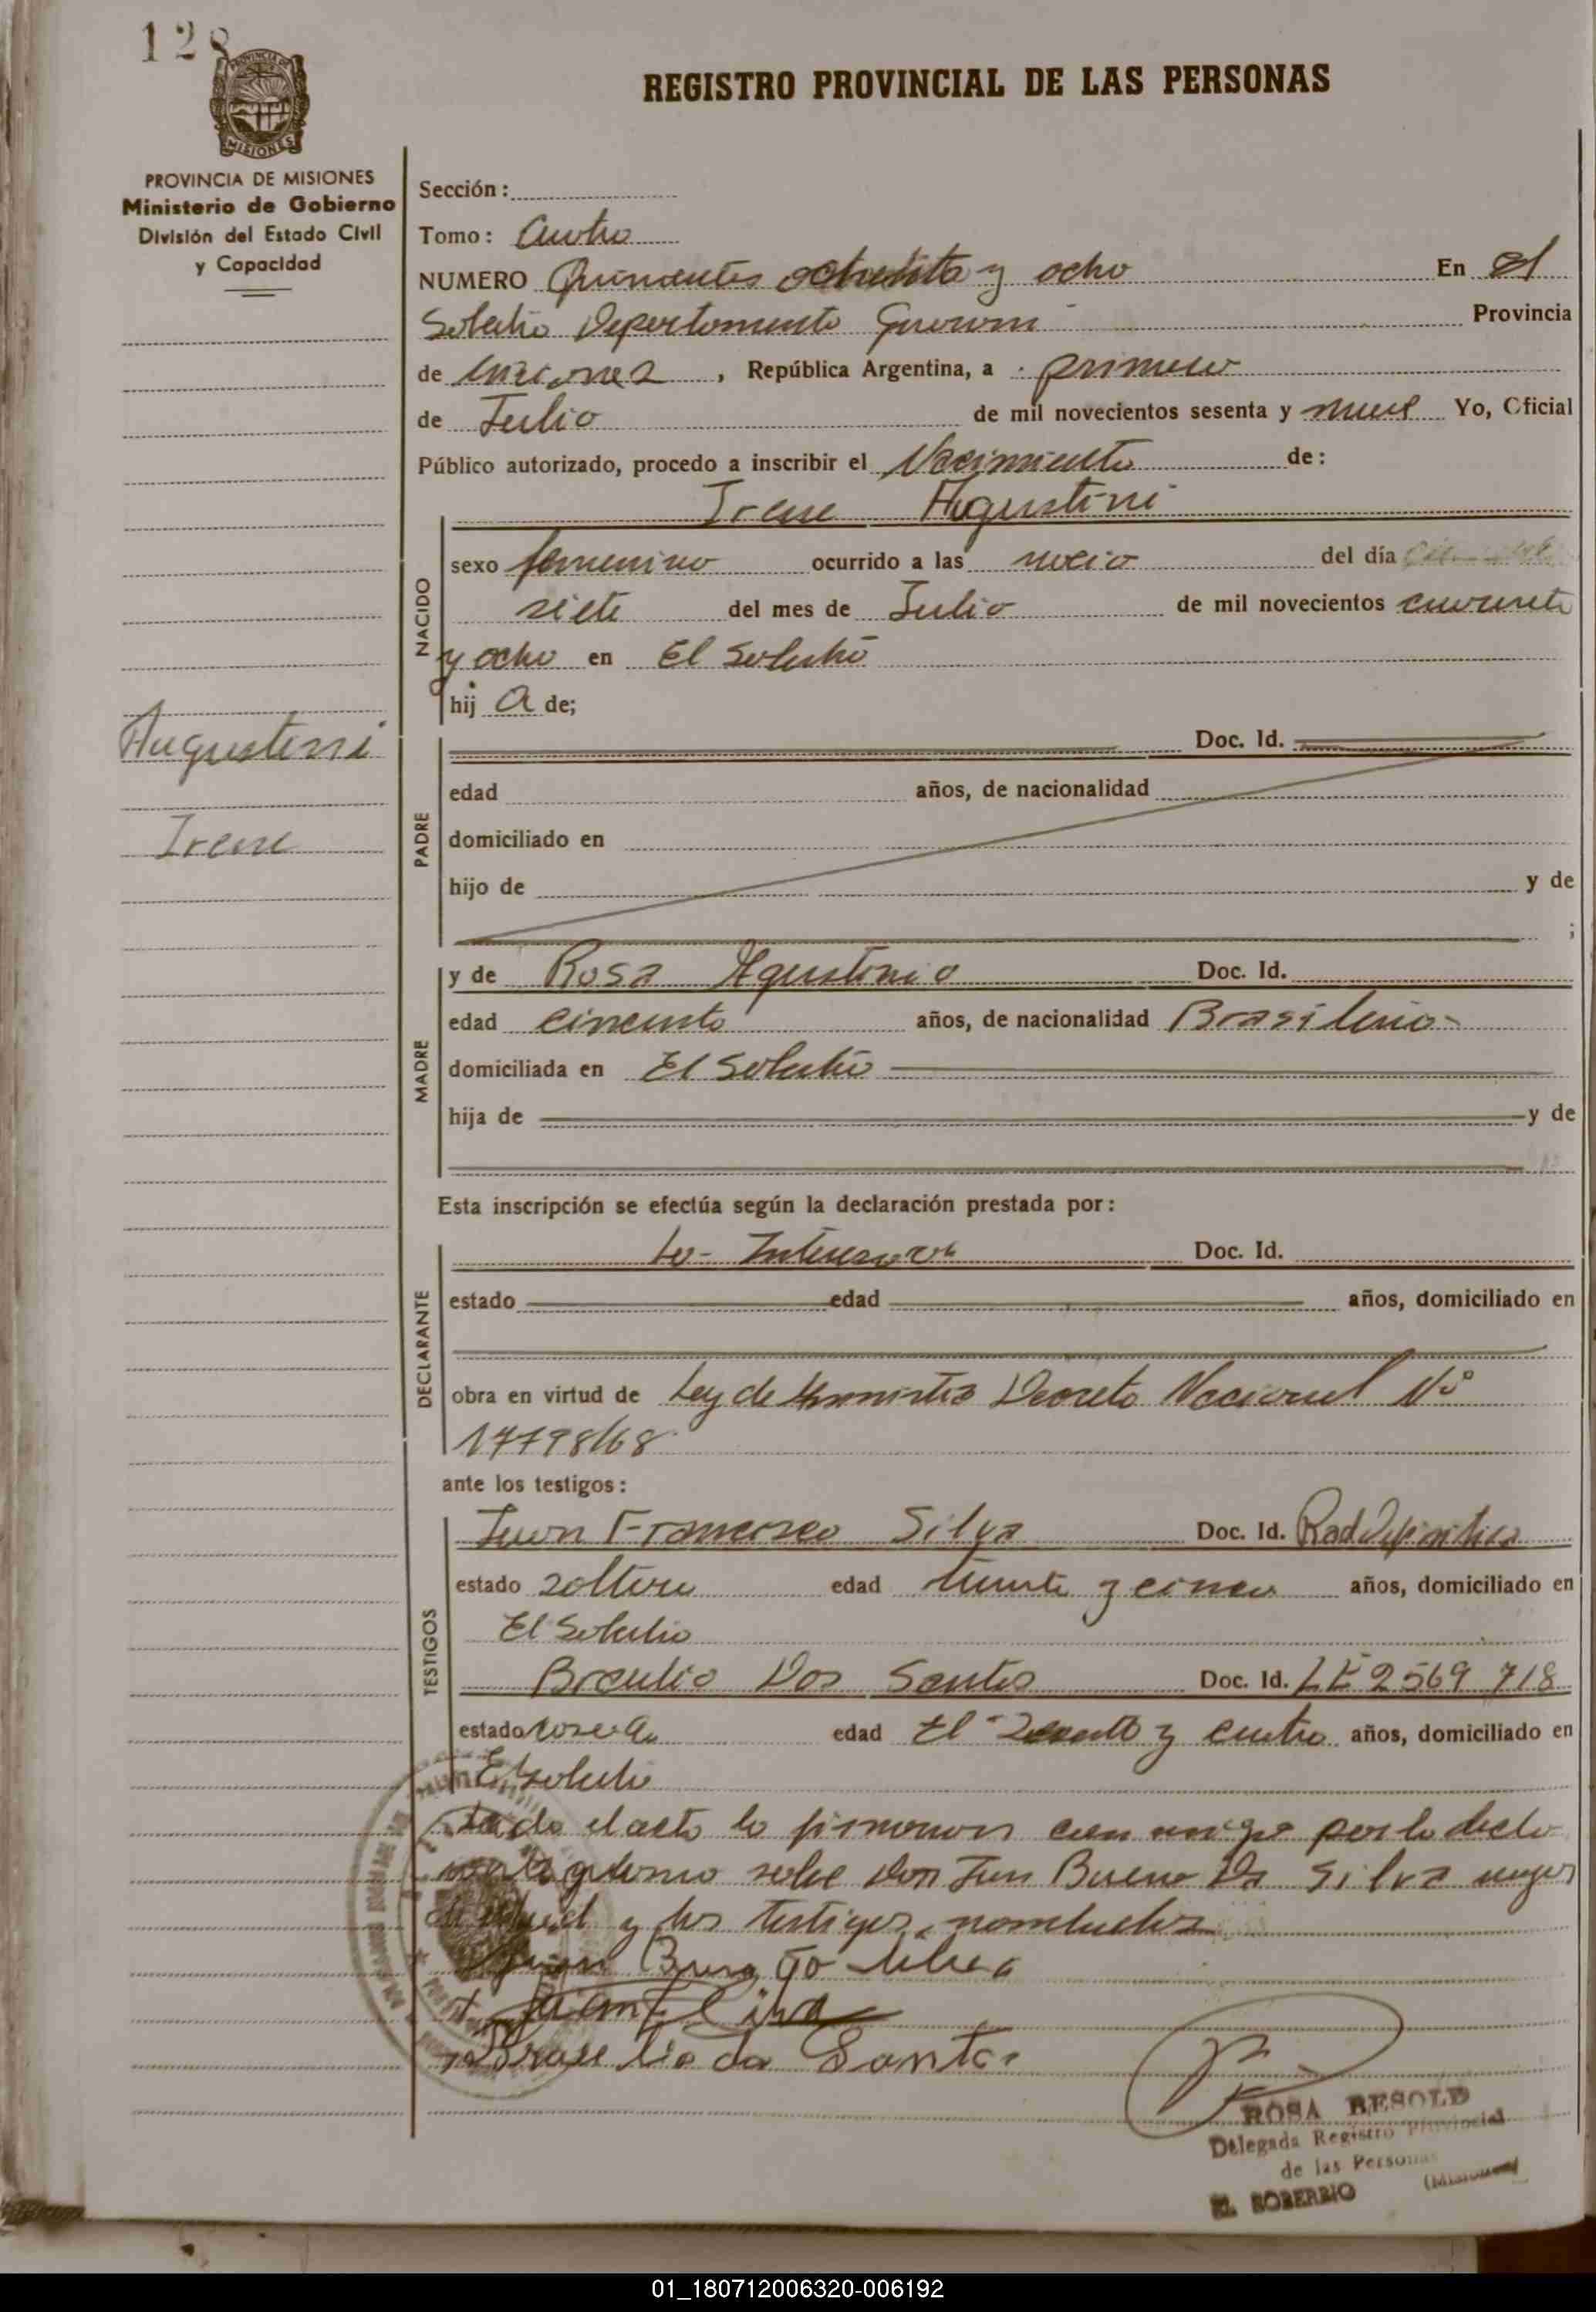 128
PROVINCIA DE
MISIONES
REGISTRO PROVINCIAL DE LAS PERSONAS
PROVINCIA DE MISIONES
Ministerio de Gobierno
División del Estado Civil
y Capacidad
Sección:
Tomo: Cuatro
NUMERO Quinientos ochenta y ocho En El
Soberbio Departamento Guarani Provincia
de Misiones, República Argentina, a primero
de Julio de mil novecientos sesenta y nueve Yo, Oficial
Público autorizado, procedo a inscribir el Nacimiento de:
Irene Agustini
NACIDO
sexo femenino ocurrido a las nueve del día
siete del mes de Julio de mil novecientos cuarenta
y ocho en El Soberbio
hij a de;
Augustini
Irene
PADRE
Doc. Id.
edad años, de nacionalidad
domiciliado en
hijo de y de
;
MADRE
y de Rosa Agustinio Doc. Id.
edad cincuenta años, de nacionalidad Brasilera
domiciliada en El Soberbio
hija de y de
Esta inscripción se efectúa según la declaración prestada por:
DECLARANTE
La Interesada Doc. Id.
estado edad años, domiciliado en
obra en virtud de Ley de Amnistia Decreto Nacional Nº
17798/68
ante los testigos:
TESTIGOS
Juan Francisco Silva Doc. Id. Rad Definitiva
estado soltero edad treinta y cinco años, domiciliado en
El Soberbio
Braulio Dos Santos Doc. Id. LE 2569 718
estado casado edad y cuatro años, domiciliado en
El Soberbio
el acto lo firmaron con migo por la decla
no sabe Don Juan Bueno Da Silva mayor
de edad y los testigos nombrados
Juan
Juan F Silva
Santos
ROSA BESOLD
Delegada Registro Provincial
de las Personas
EL SOBERBIO (Misiones)
01_180712006320-006192